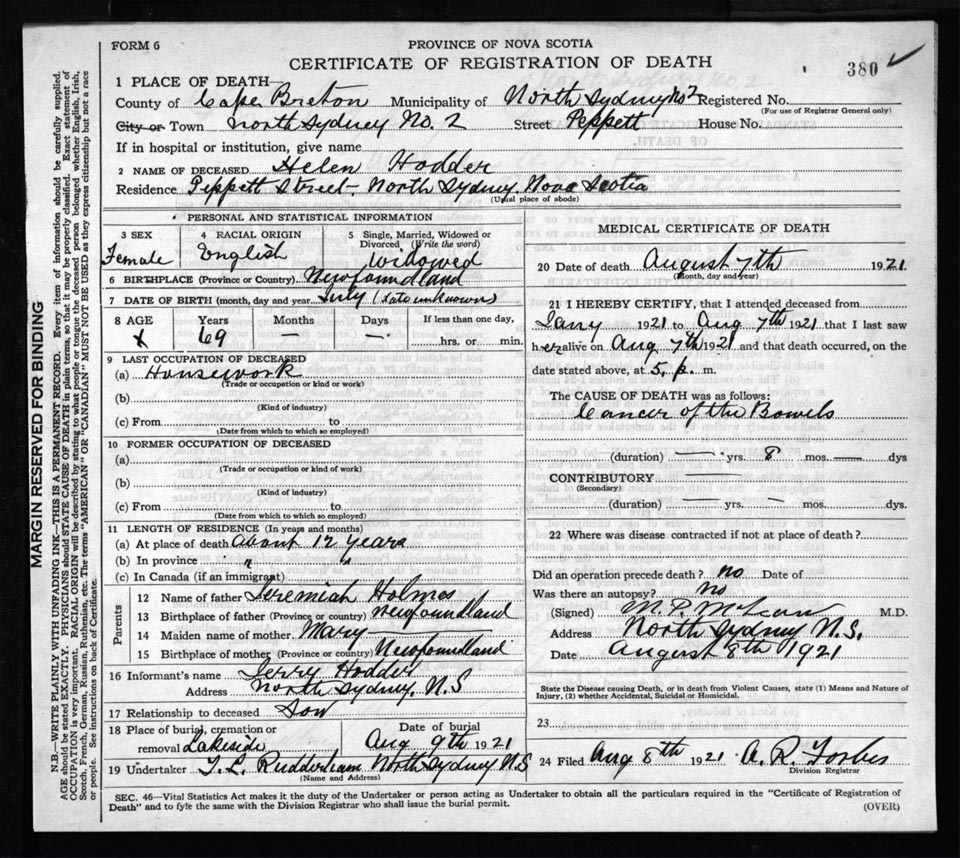 FORM 6
PROVINCE OF NOVA SCOTIA
CERTIFICATE OF REGISTRATION OF DEATH
380
1 PLACE OF DEATH—
County of Cape Breton Municipality of North Sydney No 2 Registered No.
(For use of Registrar General only)
City or Town North Sydney No. 2 Street Peppett House No.
If in hospital or institution, give name
2 NAME OF DECEASED Helen Hodder
Residence Peppett Street - North Sydney, Nova Scotia
(Usual place of abode)
PERSONAL AND STATISTICAL INFORMATION
3 SEX Female
4 RACIAL ORIGIN English
5 Single, Married, Widowed or Divorced (Write the word) Widowed
6 BIRTHPLACE (Province or Country) Newfoundland
7 DATE OF BIRTH (month, day and year) July (Date unknown)
8 AGE Years Months Days If less than one day,
69 — — hrs. or min.
9 LAST OCCUPATION OF DECEASED
(a) Housework
(Trade or occupation or kind of work)
(b)
(Kind of industry)
(c) From to
(Date from which to which so employed)
10 FORMER OCCUPATION OF DECEASED
(a)
(Trade or occupation or kind of work)
(b)
(Kind of industry)
(c) From to
(Date from which to which so employed)
11 LENGTH OF RESIDENCE (In years and months)
(a) At place of death About 12 years
(b) In province " "
(c) In Canada (if an immigrant)
Parents
12 Name of father Jeremiah Holmes
13 Birthplace of father (Province or country) Newfoundland
14 Maiden name of mother Mary —
15 Birthplace of mother (Province or country) Newfoundland
16 Informant's name Jerry Hodder
Address North Sydney, N.S
17 Relationship to deceased Son
18 Place of burial, cremation or removal Lakeside Date of burial Aug 9th 1921
19 Undertaker T. L. Ruddirham North Sydney N.S
(Name and Address)
MEDICAL CERTIFICATE OF DEATH
20 Date of death August 7th 1921
(Month, day and year)
21 I HEREBY CERTIFY, that I attended deceased from
Janry 1921 to Aug 7th 1921 that I last saw
her alive on Aug 7th 1921 and that death occurred, on the
date stated above, at 5 p. m.
The CAUSE OF DEATH was as follows:
Cancer of the Bowels
(duration) — yrs. 8 mos. — dys
CONTRIBUTORY
(Secondary)
(duration) — yrs. — mos. dys.
22 Where was disease contracted if not at place of death?
Did an operation precede death? no Date of
Was there an autopsy? No
(Signed) M. P. McLean M.D.
Address North Sydney N.S.
Date August 8th 1921
State the Disease causing Death, or in death from Violent Causes, state (1) Means and Nature of
Injury, (2) whether Accidental, Suicidal or Homicidal.
23
24 Filed Aug 8th 1921 A. R. Forbes
Division Registrar
SEC. 46—Vital Statistics Act makes it the duty of the Undertaker or person acting as Undertaker to obtain all the particulars required in the "Certificate of Registration of
Death" and to fyle the same with the Division Registrar who shall issue the burial permit.
(OVER)
MARGIN RESERVED FOR BINDING
N.B.—WRITE PLAINLY WITH UNFADING INK—THIS IS A PERMANENT RECORD. Every item of information should be carefully supplied.
AGE should be stated EXACTLY. PHYSICIANS should STATE CAUSE OF DEATH in plain terms, so that it may be properly classified. Exact statement of
OCCUPATION is very important. RACIAL ORIGIN will be described by stating to what people or tongue the deceased person belonged, whether English, Irish,
Scotch, French, German, Russian, Ruthenian, etc. The terms "AMERICAN" or "CANADIAN" MUST NOT BE USED as they express citizenship but not a race
or people. See instructions on back of Certificate.